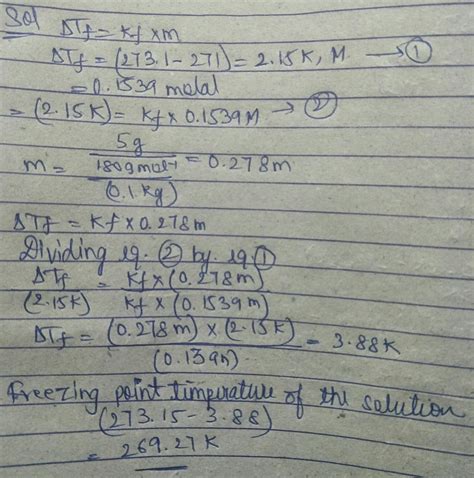 Sol ΔTf = Kf × m
ΔTf = (273.1 - 271) = 2.15K, M → ①
= 0.1539 molal
= (2.15K) = Kf × 0.1539M → ②
m = 5g / 180gmol-1 / (0.1 kg) = 0.278m
ΔTf = Kf × 0.278m
Dividing eq. ② by eq. ①
ΔTf / (2.15K) = Kf × (0.278m) / Kf × (0.1539m)
ΔTf = (0.278m) × (2.15K) / (0.139m) = 3.88K
Freezing point timperature of the solution
(273.15 - 3.88)
= 269.27K